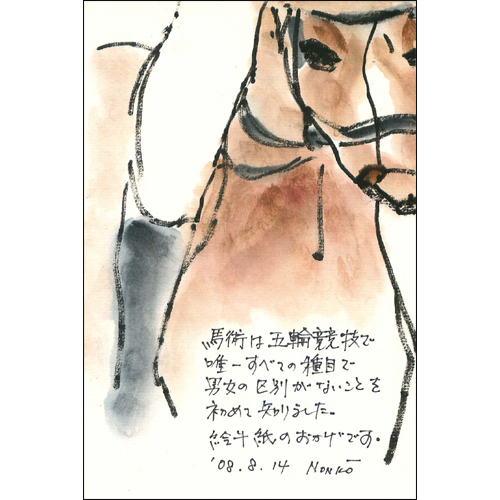 馬術は五輪競技で
唯一すべての種目で
男女の区別がないことを
初めて知りました。
絵手紙のおかげです。
'08.8.14 NONKO